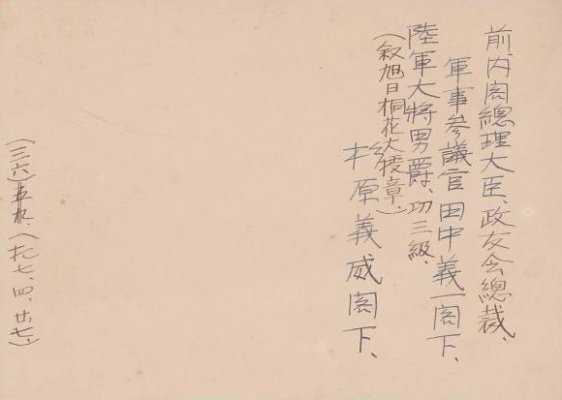 前、内閣總理大臣、政友会總裁、
軍事参議官 田中義一閣下、
陸軍大將男爵、功三級、
(叙旭日桐花大綬章、)
杉原義威閣下、
(三六) 七、四、廿七、)